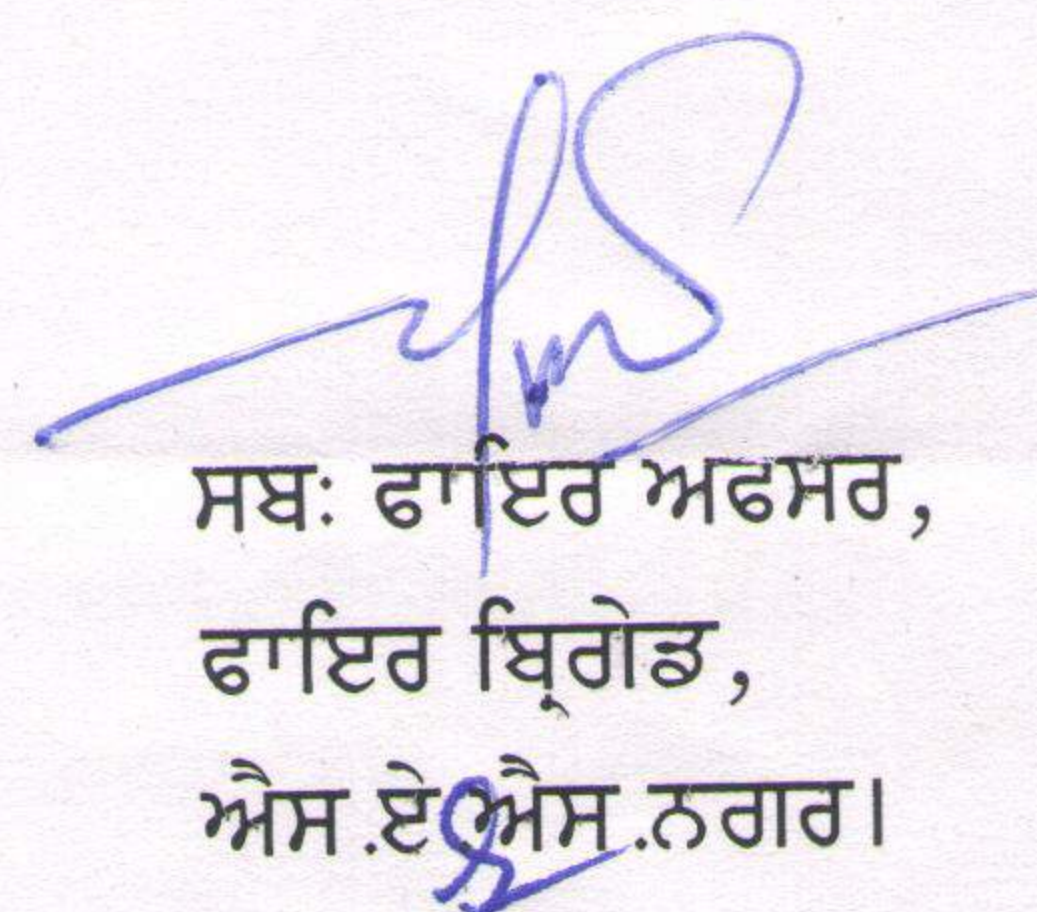 ਸਬ: ਫਾਇਰ ਅਫਸਰ,
ਫਾਇਰ ਬ੍ਰਿਗੇਡ,
ਐਸ.ਏ.ਐਸ.ਨਗਰ।